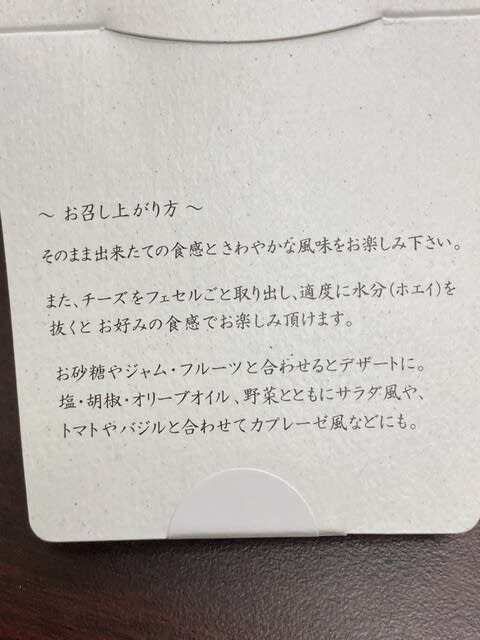 ～ お召し上がり方 ～
そのまま出来たての食感とさわやかな風味をお楽しみ下さい。
また、チーズをフェセルごと取り出し、適度に水分(ホエイ)を
抜くと お好みの食感でお楽しみ頂けます。
お砂糖やジャム・フルーツと合わせるとデザートに。
塩・胡椒・オリーブオイル、野菜とともにサラダ風や、
トマトやバジルと合わせてカプレーゼ風などにも。